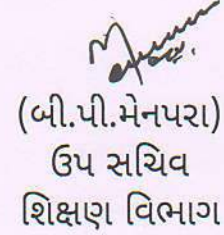 (બી.પી.મેનપરા)
ઉપ સચિવ
શિક્ષણ વિભાગ